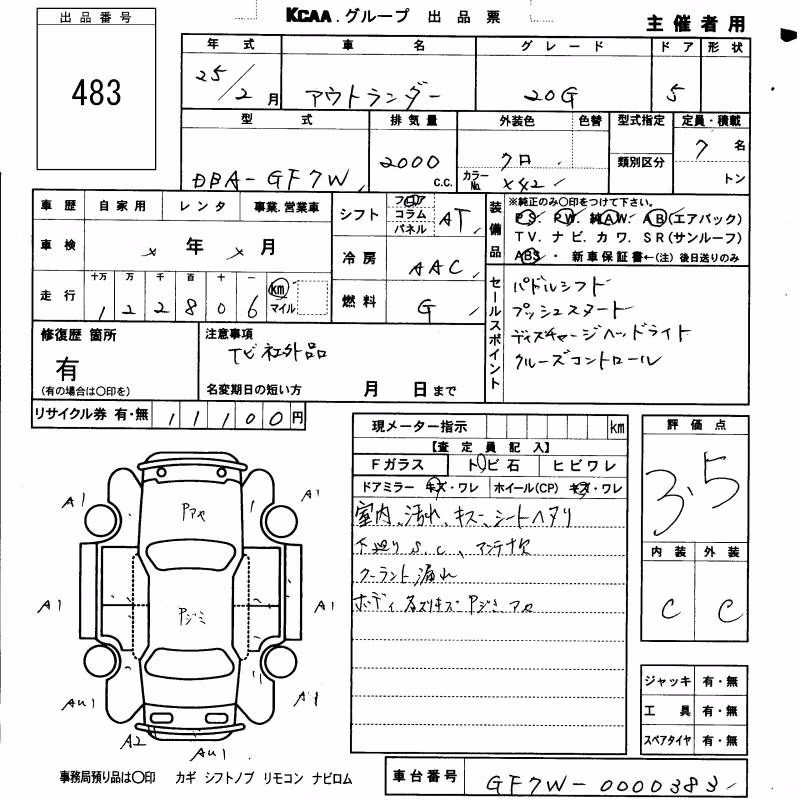 出品番号
KCAA.グループ 出品票
主催者用
483
年式 車名 グレード ドア 形状
25/2月 アウトランダー 20G 5
型式 排気量 外装色 色替 型式指定 定員・積載
類別区分
DBA-GF7W 2000 c.c. クロ カラーNo. X42 7 名
トン
車歴 自家用 レンタ 事業.営業車
シフト フロア コラム パネル AT
装備品 ※純正のみ〇印をつけて下さい。
PS. PW. 純AW. AB(エアバック)
TV. ナビ. カワ. SR(サンルーフ)
ABS・ 新車保証書←(注) 後日送りのみ
車検 × 年 × 月
冷房 AAC
走行 十万 万 千 百 十 一
1 2 2 8 0 6 km マイル
燃料 G
セールスポイント パドルシフト
プッシュスタート
ディスチャージヘッドライト
クルーズコントロール
修復歴 箇所
有
(有の場合は〇印を)
注意事項
TV社外品
名変期日の短い方 月 日まで
リサイクル券 有・無 11100円
現メーター指示 km
【査定員記入】
Fガラス トビ石 ヒビワレ
ドアミラー キズ・ワレ ホイール(CP) キズ・ワレ
室内、汚れ、キズ、シートヘタリ
下廻りS.C、アンテナ欠
クーラント漏れ
ボディ 各スリキズ Pジミ アセ
評価点
3.5
内装 外装
C C
A1 Pアセ A1
A1 Pジミ A1
AU1 A1
A2 AU1
ジャッキ 有・無
工具 有・無
スペアタイヤ 有・無
事務局預り品は〇印 カギ シフトノブ リモコン ナビロム
車台番号 GF7W-0000383